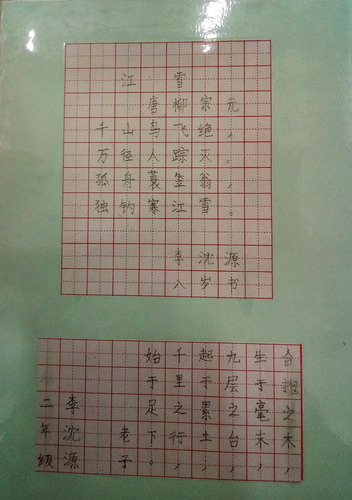 江雪
唐 柳宗元
千山鸟飞绝，
万径人踪灭。
孤舟蓑笠翁，
独钓寒江雪。
李沈源
八岁书
合抱之木，
生于毫末，
九层之台，
起于累土，
千里之行，
始于足下。
老子
李沈源
二年级